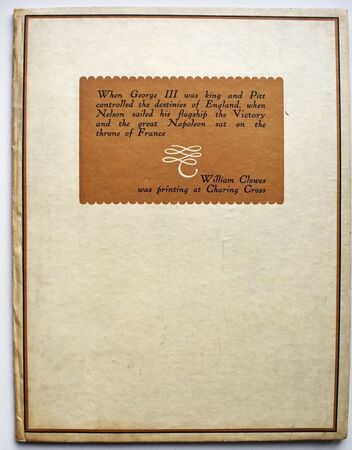 When George III was king and Pitt
controlled the destinies of England, when
Nelson sailed his flagship the Victory
and the great Napoleon sat on the
throne of France
William Clowes
was printing at Charing Cross